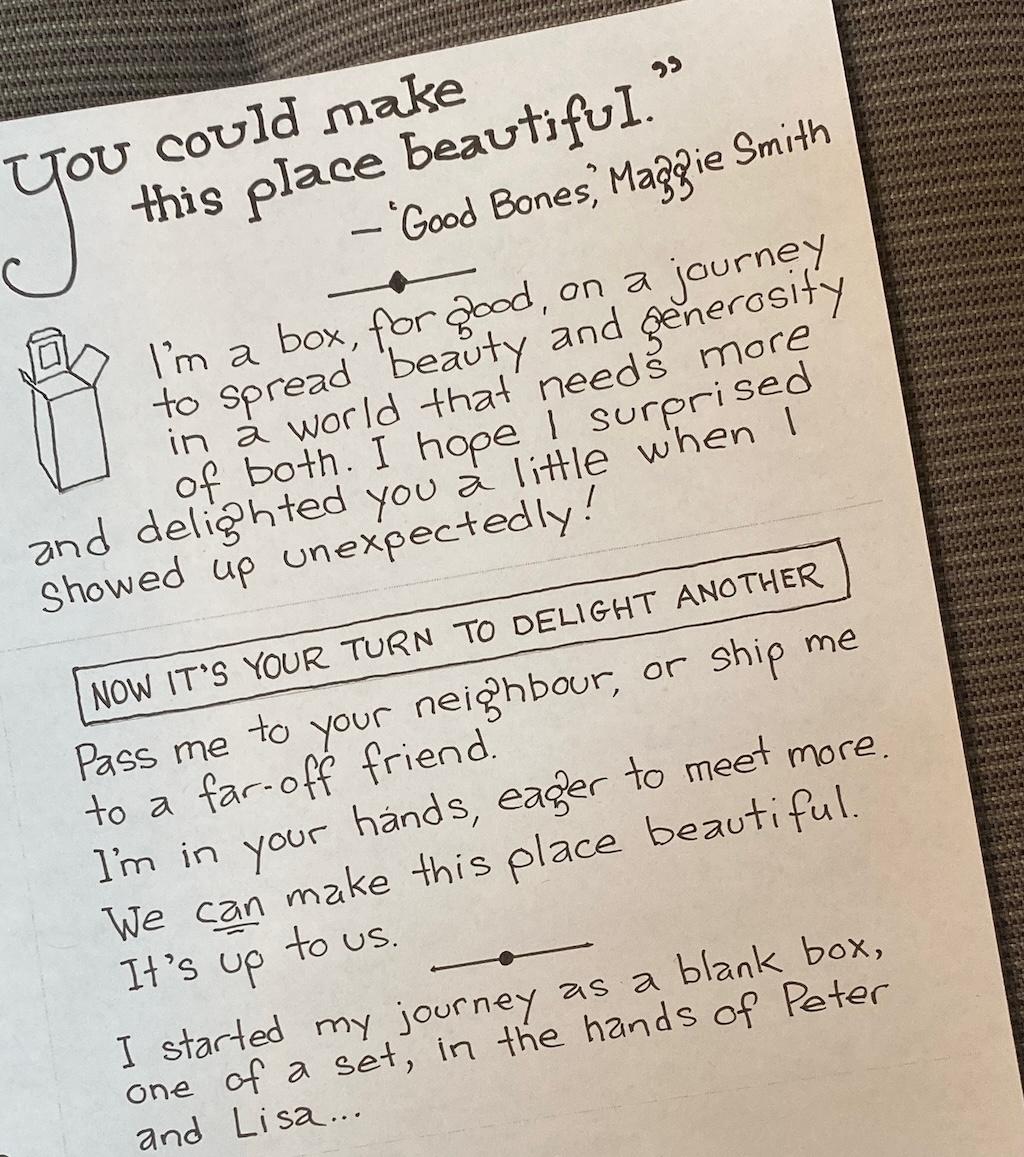 You could make
this place beautiful.”
— ‘Good Bones,’ Maggie Smith
I'm a box, for good, on a journey
to spread beauty and generosity
in a world that needs more
of both. I hope I surprised
and delighted you a little when I
showed up unexpectedly!
NOW IT'S YOUR TURN TO DELIGHT ANOTHER
Pass me to your neighbour, or ship me
to a far-off friend.
I'm in your hands, eager to meet more.
We can make this place beautiful.
It's up to us.
I started my journey as a blank box,
one of a set, in the hands of Peter
and Lisa...